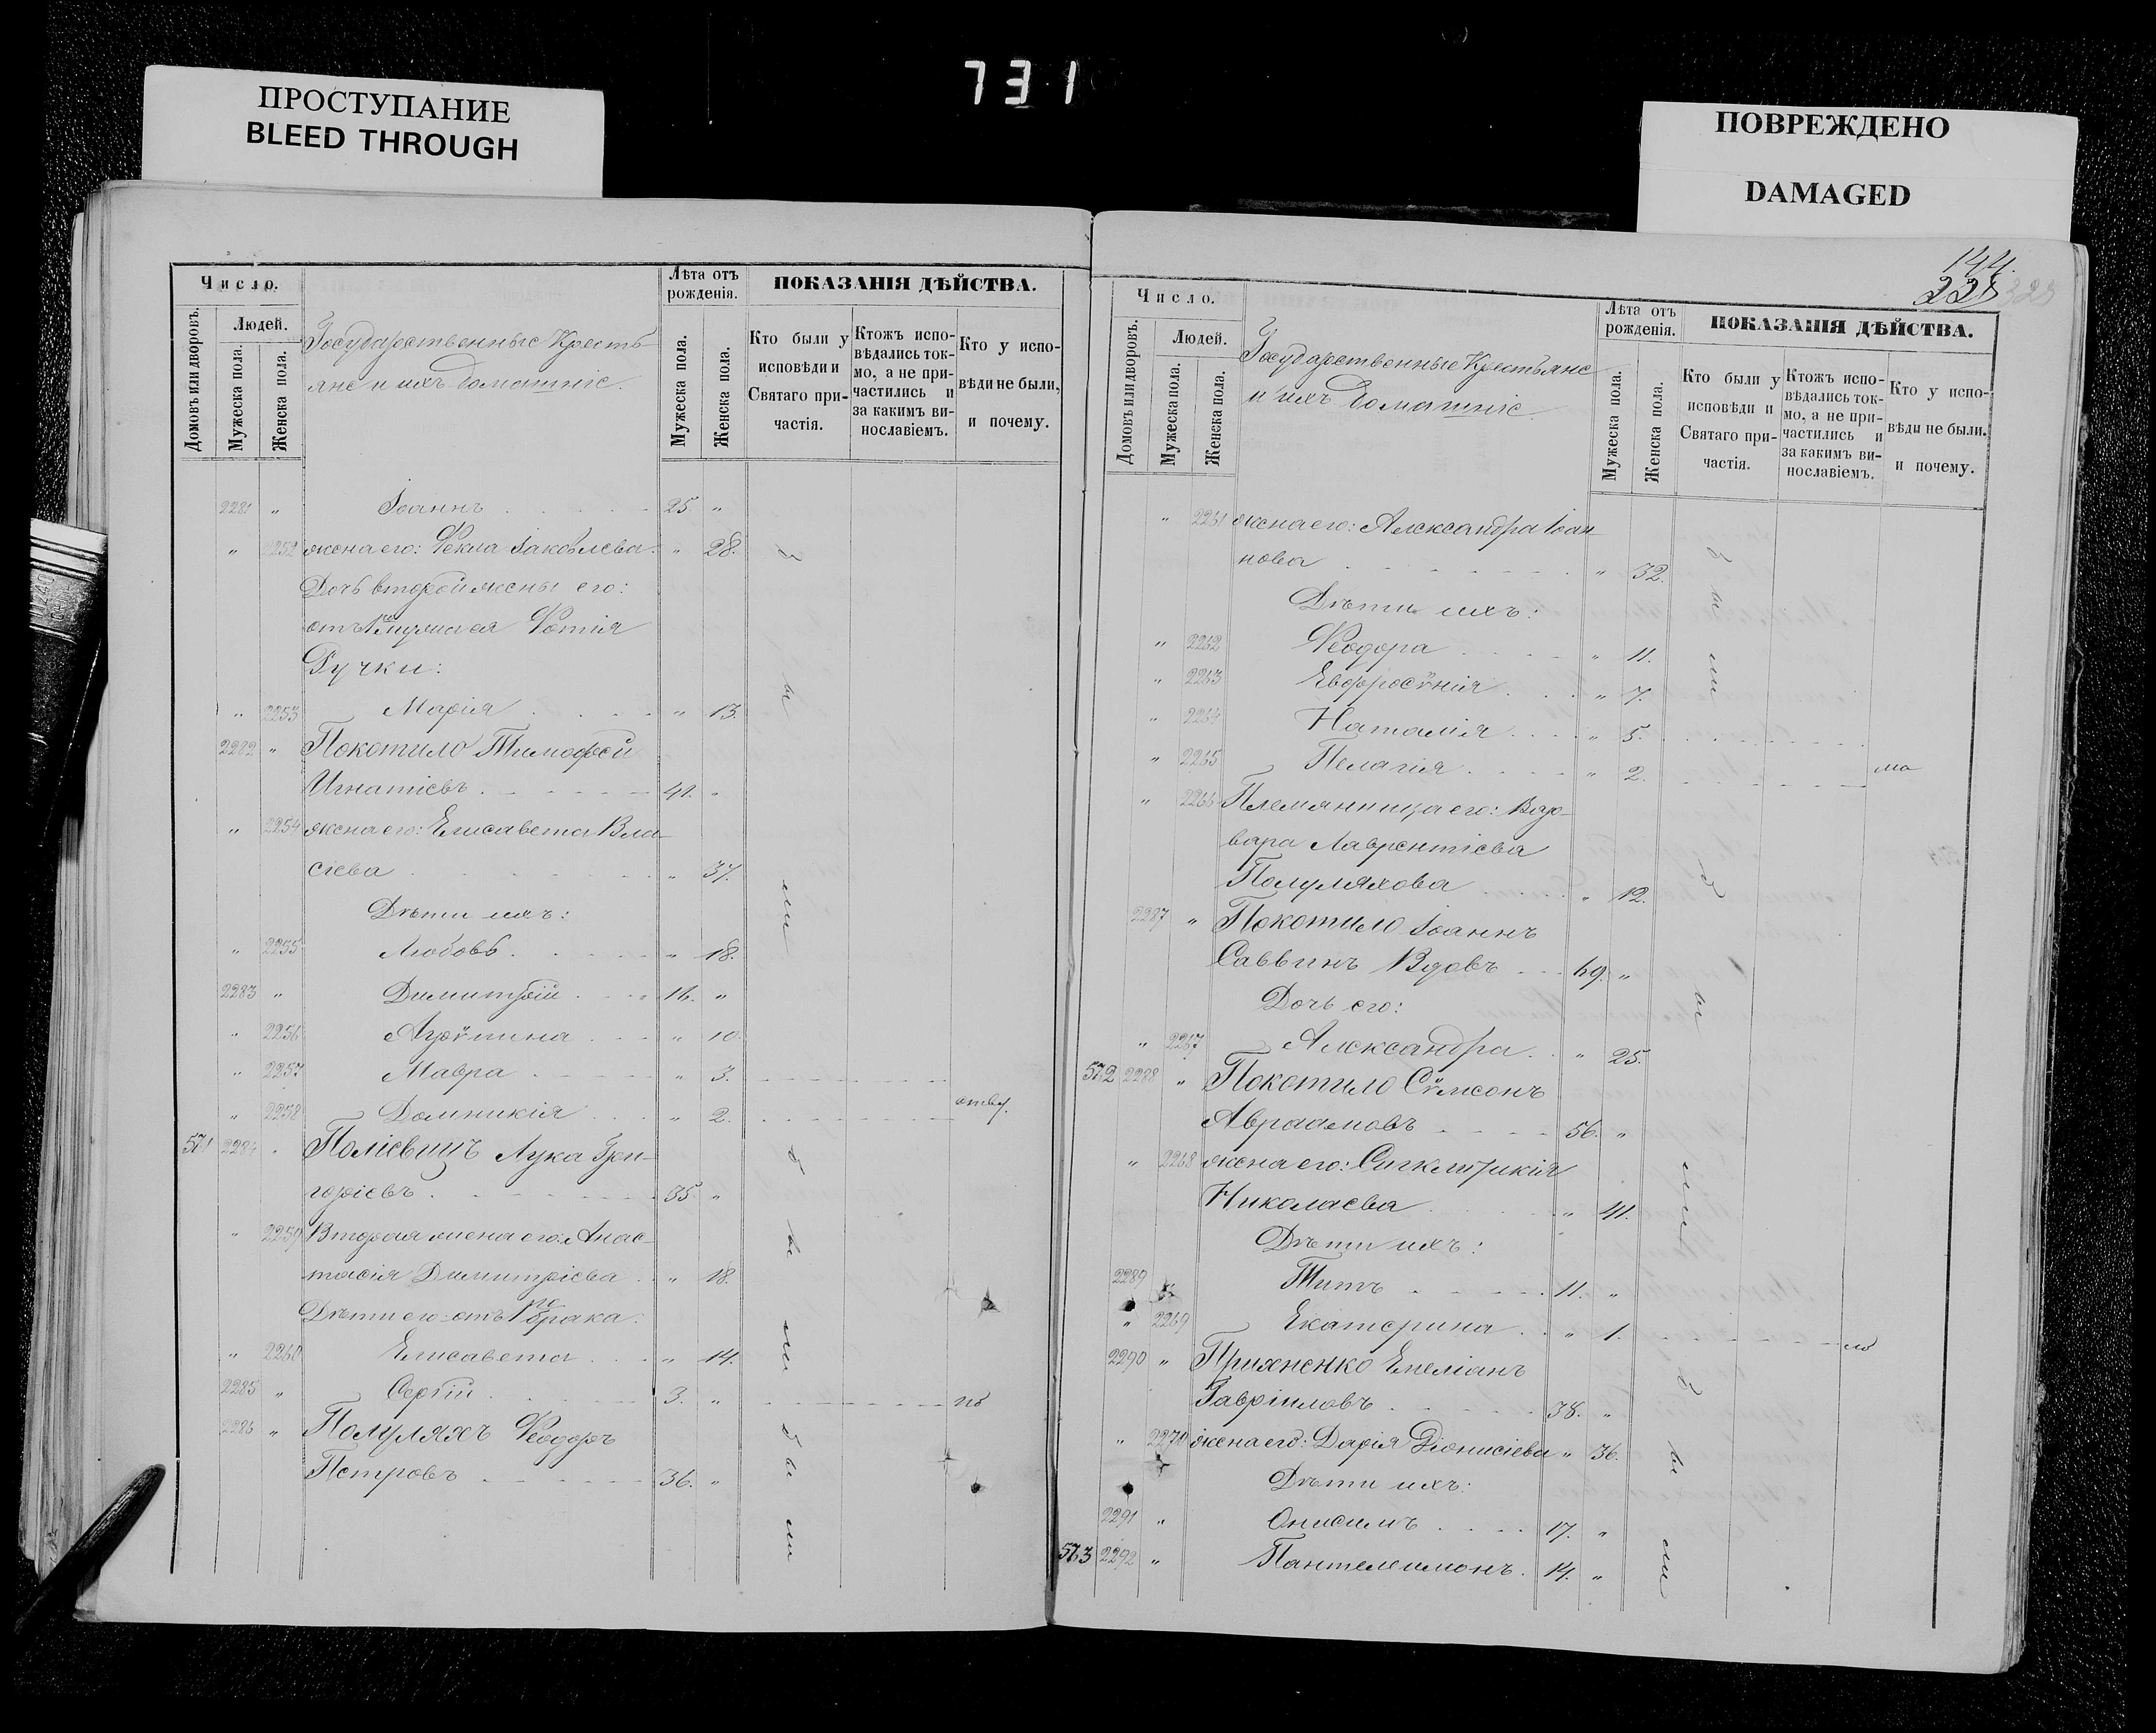 731
ПРОСТУПАНИЕ
BLEED THROUGH
ПОВРЕЖДЕНО
DAMAGED
Число.
Людей.
Домовъ или дворовъ.
Мужеска пола.
Женска пола.
Государственные Кресть-
яне и ихъ домашніе.
Лѣта отъ
рожденія.
Мужеска пола.
Женска пола.
ПОКАЗАНІЯ ДѢЙСТВА.
Кто были у
исповѣди и
Святаго при-
частія.
Ктожъ испо-
вѣдались ток-
мо, а не при-
частились и
за какимъ ви-
нославіемъ.
Кто у испо-
вѣди не были,
и почему.
2281 " Іоаннъ 25 "
" 2252 жена его: Ѳекла Іаковлева " 28.
Дочь второй жены его:
отъ 1го мужа ея Фотія
Ручки:
" 2253 Марія " 13.
2282 " Покотило Тимофей
Игнатіевъ 41. "
" 2254 жена его: Елисавета Вла-
сіева " 37.
Дѣти ихъ:
" 2255 Любовь " 18.
2283 " Димитрій 16. "
" 2256 Агрѵпина " 10.
" 2257 Мавра " 3.
" 2258 Домникія " 2.
571 2284 " Поліевцъ Лука Гри-
горіевъ 35. "
" 2259 Вторая жена его: Анас-
тасія Димитріева " 18.
Дѣти его отъ 1го брака:
" 2260 Елисавета " 14.
2285 " Сергій 3. "
2286 " Полуляхъ Ѳеодоръ
Петровъ 36. "
были
были
были
144.
Число.
Людей.
Домовъ или дворовъ.
Мужеска пола.
Женска пола.
Государственные Крестьяне
и ихъ домашніе.
Лѣта отъ
рожденія.
Мужеска пола.
Женска пола.
ПОКАЗАНІЯ ДѢЙСТВА.
Кто были у
исповѣди и
Святаго при-
частія.
Ктожъ испо-
вѣдались ток-
мо, а не при-
частились и
за какимъ ви-
нославіемъ.
Кто у испо-
вѣди не были.
и почему.
" 2261 жена его: Александра Іоан-
нова " 32.
Дѣти ихъ:
" 2262 Ѳеодора " 11.
" 2263 Евфросѵнія " 7.
" 2264 Наталія " 5.
" 2265 Пелагія " 2.
" 2266 Племянница его: Вар-
вара Лаврентіева
Полуляхова " 12.
2287 " Покотило Іоаннъ
Саввинъ Вдовъ 69. "
Дочь его:
" 2267 Александра " 25.
572 2288 " Покотило Сѵмсонъ
Авраамовъ 56. "
" 2268 жена его: Сигклитикія
Николаева " 41.
Дѣти ихъ:
2289 " Титъ 11. "
" 2269 Екатерина " 1.
2290 " Прихненко Емеліанъ
Гавріиловъ 38. "
" 2270 жена его: Дарія Діонисіева " 36.
Дѣти ихъ:
2291 " Онисимъ 17. "
573 2292 " Пантелеимонъ 14. "
были
были
были